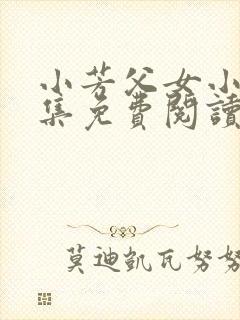 小芳父女小
集免費閱讀
莫迪凱瓦努努